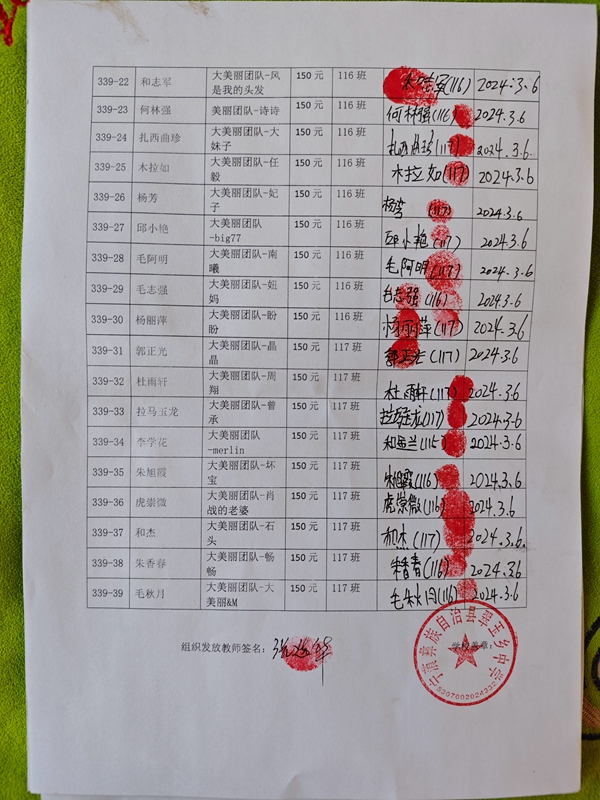 339-22 和志军 大美丽团队-风是我的头发 150元 116班 (116) 2024.3.6
339-23 何林强 美丽团队-诗诗 150元 116班 何林强(116) 2024.3.6
339-24 扎西曲珍 大美丽团队-大妹子 150元 116班 扎西曲珍(117) 2024.3.6
339-25 木拉如 大美丽团队-任毅 150元 116班 木拉如(117) 2024.3.6
339-26 杨芳 大美丽团队-妃子 150元 116班 (117) 2024.3.6
339-27 邱小艳 大美丽团队-big77 150元 116班 邱小艳(117) 2024.3.6
339-28 毛阿明 大美丽团队-南曦 150元 116班 毛阿明(117) 2024.3.6
339-29 毛志强 大美丽团队-妞妈 150元 116班 毛志强(116) 2024.3.6
339-30 杨丽萍 大美丽团队-盼盼 150元 116班 杨丽萍(117) 2024.3.6
339-31 郭正光 大美丽团队-晶晶 150元 117班 郭正光(117) 2024.3.6
339-32 杜雨轩 大美丽团队-周翔 150元 117班 杜雨轩(117) 2024.3.6
339-33 拉马五龙 大美丽团队-曾承 150元 117班 (117) 2024.3.6
339-34 李学花 大美丽团队-merlin 150元 117班 和兰(115) 2024.3.6
339-35 朱旭霞 大美丽团队-坏宝 150元 117班 朱旭霞(116) 2024.3.6
339-36 虎崇微 大美丽团队-肖战的老婆 150元 117班 虎崇微(116) 2024.3.6
339-37 和杰 大美丽团队-石头 150元 117班 和杰(117) 2024.3.6
339-38 朱香春 大美丽团队-畅畅 150元 117班 (116) 2024.3.6
339-39 毛秋月 大美丽团队-大美丽&M 150元 117班 毛秋月(116) 2024.3.6
组织发放教师签名： 学校盖章：
宁蒗彝族自治县翠玉乡中学